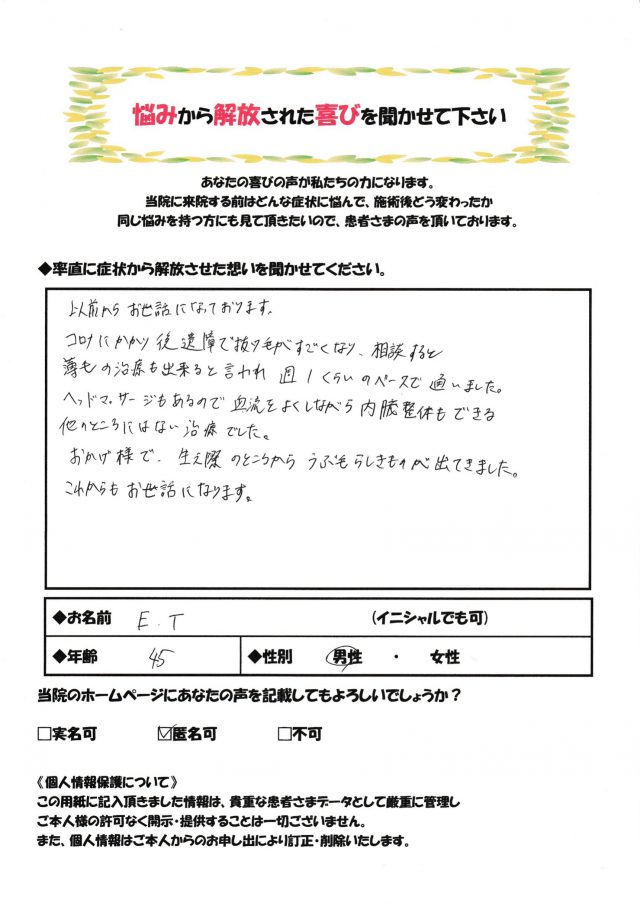 悩みから解放された喜びを聞かせて下さい
あなたの喜びの声が私たちの力になります。
当院に来院する前はどんな症状に悩んで、施術後どう変わったか
同じ悩みを持つ方にも見て頂きたいので、患者さまの声を頂いております。
◆率直に症状から解放させた想いを聞かせてください。
以前からお世話になっております。
コロナにかかり後遺障で抜け毛がすごくなり、相談すると
薄毛の治療も出来ると言われ 週1くらいのペースで通いました。
ヘッドマッサージもあるので血流をよくしながら内臓整体もできる
他のところにはない治療でした。
おかげ様で、生え際のところからうぶ毛らしきものが出てきました。
これからもお世話になります。
◆お名前 E.T (イニシャルでも可)
◆年齢 45 ◆性別 男性 ・ 女性
当院のホームページにあなたの声を記載してもよろしいでしょうか?
□実名可 ☑匿名可 □不可
《個人情報保護について》
この用紙に記入頂きました情報は、貴重な患者さまデータとして厳重に管理し
ご本人様の許可なく開示・提供することは一切ございません。
また、個人情報はご本人からのお申し出により訂正・削除いたします。